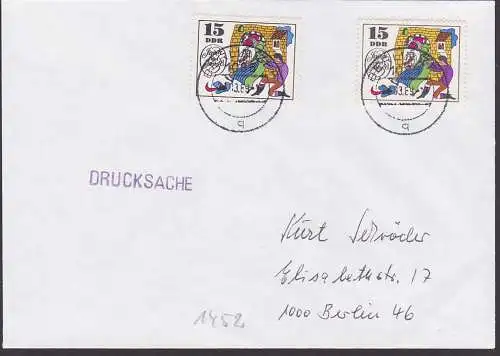 15
DDR
15
DDR
q
q
DRUCKSACHE
Kurt Schröder
Elisabethstr. 17
1000 Berlin 46
1452